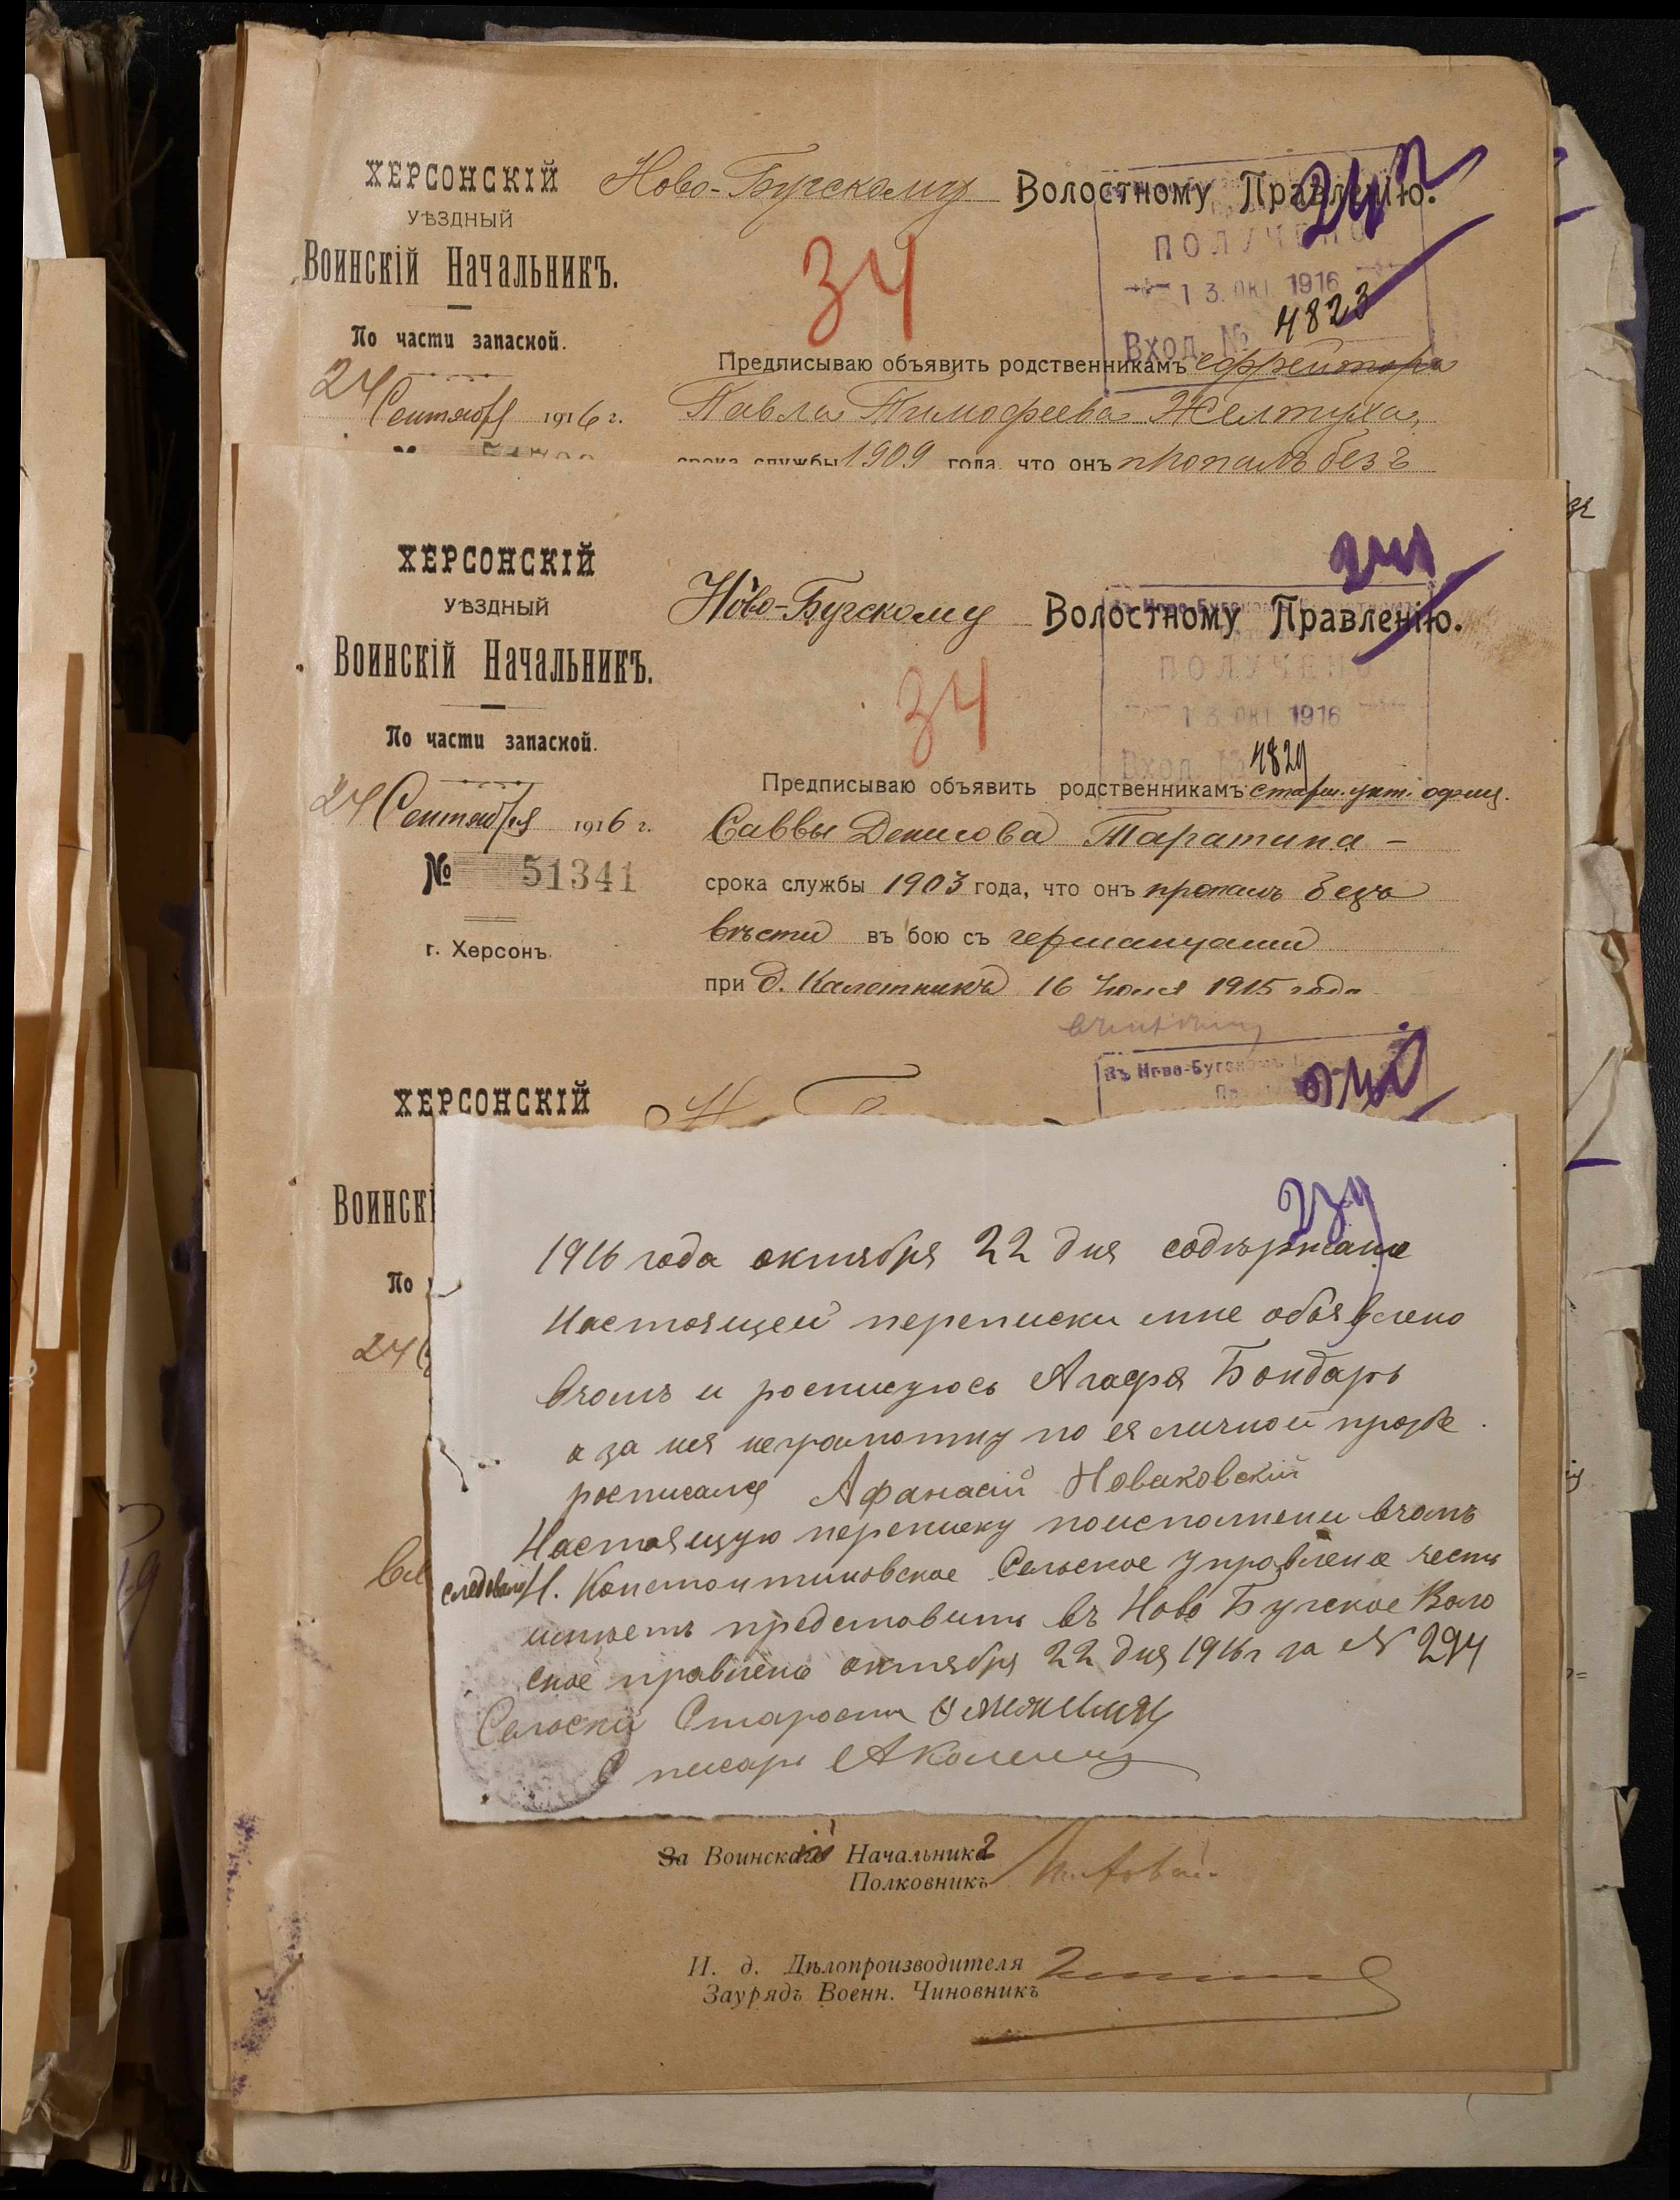 ХЕРСОНСКІЙ
УѢЗДНЫЙ
Воинскій Начальникъ.
По части запасной.
24 Сентября 1916 г.
Ново-Бугскому Волостному Правленію.
242
34
ПОЛУЧЕНО
13. ОКТ. 1916
Вход. № 4823
Предписываю объявить родственникамъ ефрейтора
Павла Тимофеева Желтуха,
срока службы 1909 года, что онъ пропалъ безъ
ХЕРСОНСКІЙ
УѢЗДНЫЙ
Воинскій Начальникъ.
По части запасной.
24 Сентября 1916 г.
№ 51341
г. Херсонъ.
Ново-Бугскому Волостному Правленію.
241
34
ПОЛУЧЕНО
13 ОКТ. 1916
Вход. № 4829
Предписываю объявить родственникамъ старш. унт. офиц.
Саввы Денисова Таратина -
срока службы 1903 года, что онъ пропалъ безъ
вѣсти въ бою съ германцами
при д. 16 Іюля 1915 года
ХЕРСОНСКІЙ
Въ Ново-Бугскомъ
240
Воинскі
По
24
239
1916 года октября 22 дня содѣржание
Настоящей переписки мне обьявлено
вчомъ и росписуюсь Агафя Бондарь
а за нея неграмотну по ея личной прозбе
росписался Афанасий Новаковский
Настоящую переписку поисполнени вчомъ
следовало Н. Константиновское Сельское управлене честь
имѣетъ предстовить въ Ново Бугское Воло
ское правлене октября 22 дня 1916 г за № 294
Сельски Староста
С писарь
За Воинскій Начальникъ
Полковникъ
И. д. Дѣлопроизводителя
Заурядъ Военн. Чиновникъ